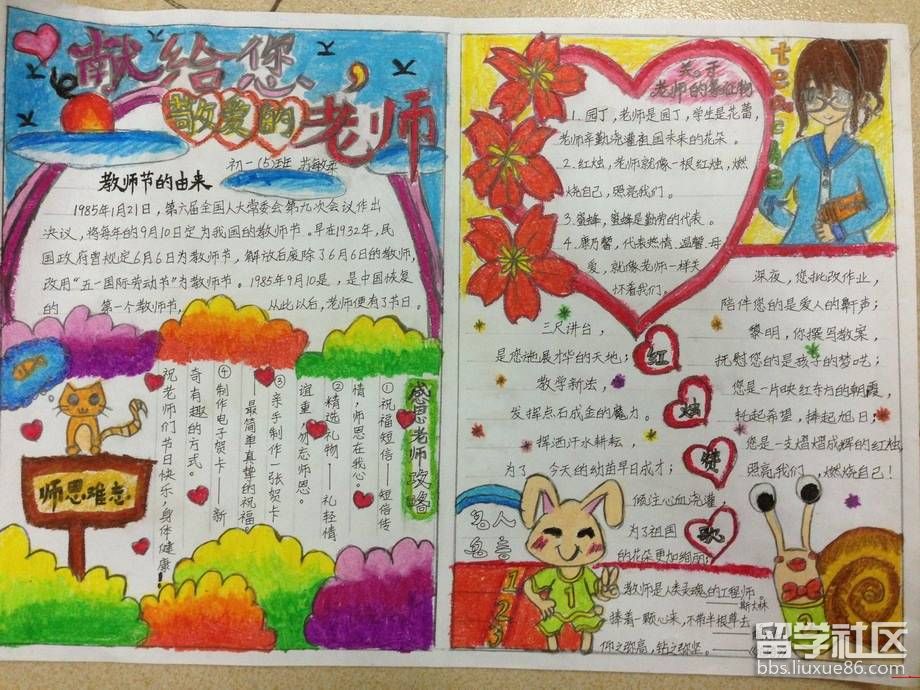 献给您、
敬爱的老师
初一(5)班
教师节的由来
1985年1月21日，第六届全国人大常委会第九次会议作出
决议，将每年的9月10日定为我国的教师节。早在1932年，民
国政府曾规定6月6日为教师节，解放后废除了6月6日的教师节，
改用“五一国际劳动节”为教师节。1985年9月10是，是中国恢复
的 第一个教师节， 从此以后，老师便有了节日。
感恩老师攻略
①祝福短信——短信传
情，师恩在我心。
②精选礼物——礼轻情
谊重，勿忘师恩。
③亲手制作一张贺卡
——最简单真挚的祝福
④制作电子贺卡——新
奇有趣的方式。
祝老师们节日快乐、身体健康！
师恩难忘
关于
老师的象征物
1.园丁，老师是园丁，学生是花蕾，
老师辛勤浇灌祖国未来的花朵。
2.红烛，老师就像一根红烛，燃
烧自己，照亮我们。
3.蜜蜂，蜜蜂是勤劳的代表。
4.康乃馨，代表热情 温馨 母
爱，就像老师一样关
怀着我们。
红烛赞歌
三尺讲台，
是您施展才华的天地；
教学新法，
发挥点石成金的魔力。
挥洒汗水耕耘，
为了 今天的幼苗早日成才；
倾注心血浇灌，
为了祖国
的花朵更加绚丽；
深夜，您批改作业，
陪伴您的是爱人的鼾声；
黎明，你撰写教案，
抚慰您的是孩子的梦呓；
您是一片映红东方的朝霞，
托起希望，捧起旭日；
您是一支熠熠成辉的红烛，
照亮我们，燃烧自己！
名人
名言
1
2
3
教师是人类灵魂的工程师。
——斯大林
捧着一颗心来，不带半根草去
仰之弥高，钻之弥坚。
1
2
留学社区
bbs.liuxue86.com